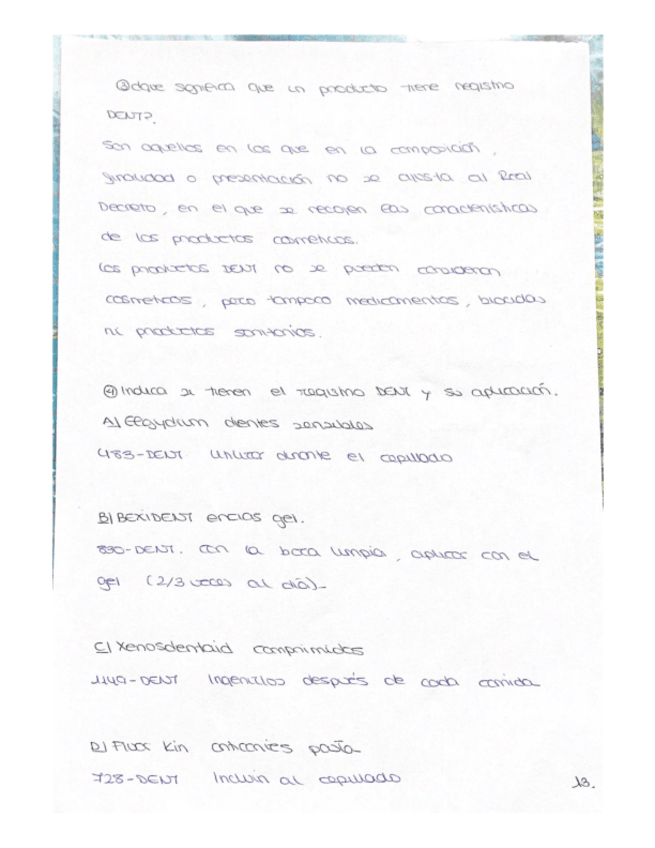 ③ ¿que significa que un producto tiene registro
DENT?.
Son aquellos en los que en la composición,
finalidad o presentación no se ajusta al Real
Decreto, en el que se recojen las características
de los productos cosméticos.
Los productos DENT no se pueden considerar
cosmeticos, pero tampoco medicamentos, biocidas
ni productos sanitarios.
④ Indica si tienen el registro DENT y su aplicación.
A) Elgydium dientes sensibles
483-DENT Utilizar durante el cepillado
B) BEXIDENT encias gel.
830-DENT. Con la boca limpia, aplicar con el
gel (2/3 veces al día)-
C) Xerosdentaid comprimidos
1149-DENT Ingerirlos después de cada comida
D) Fluor Kin anticaries pasta
728-DENT Incluir al cepillado
13.